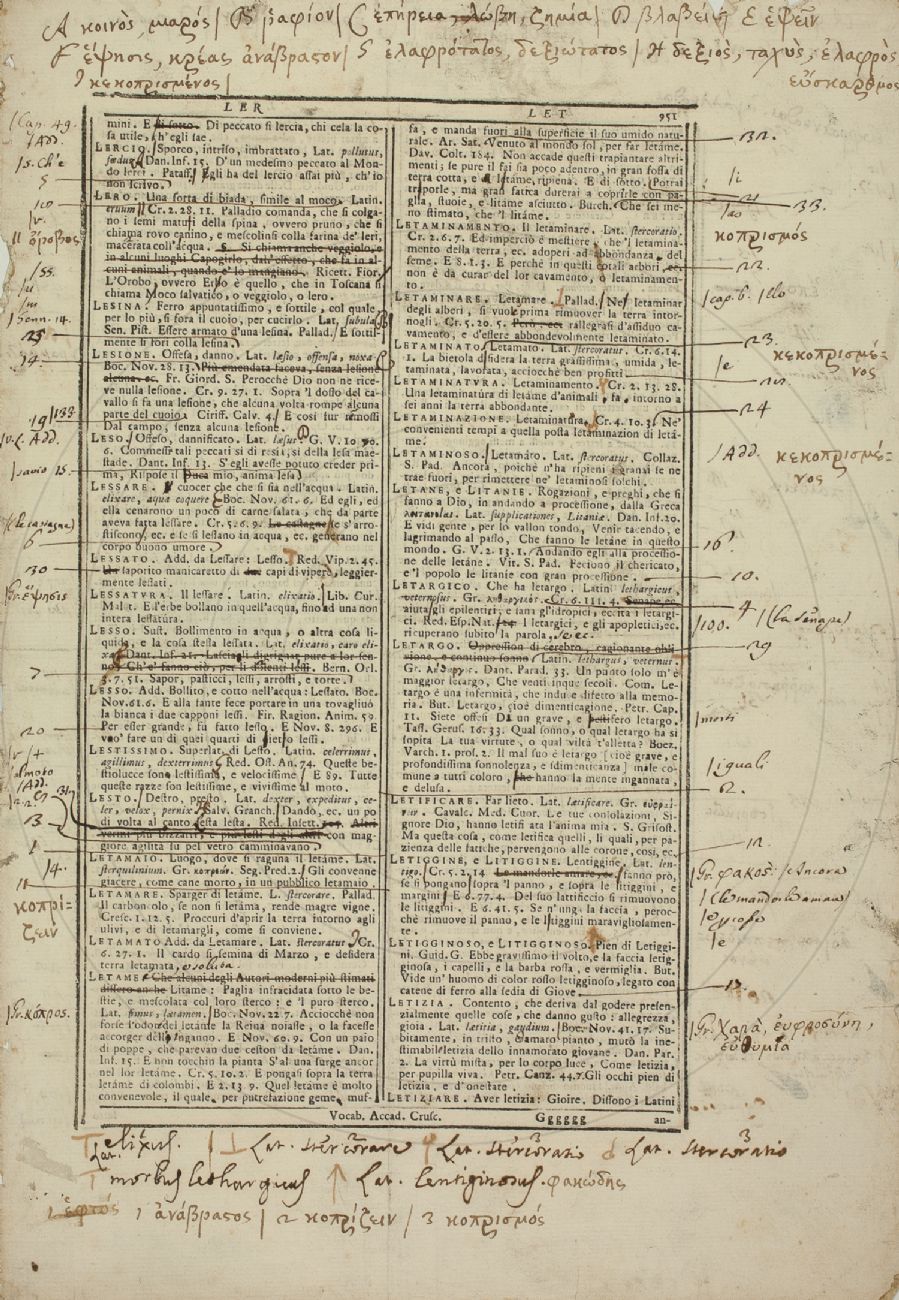 A κοινὸς, μιαρός / B βαφίον / C ἐπήρεια, λώβη, ζημία / D βλαβείς / E ἑψεῖν
F ἕψησις, κρέας ἀνάβρασον / G ἐλαφρότατος, δεξιώτατος / H δεξιὸς, ταχὺς, ἐλαφρὸς
εὔσκαρθμος
κεκοπρισμένος /
LER
LET
951
mini. E di sotto. Di peccato sì lercia, chi cela la co-
sa utile, h'egli fae.
LERCIO. Sporco, intriso, imbrattato, Lat. pollutus,
fœdus. Dan. Inf. 15. D'un medesmo peccato al Mon-
do lerci. Pataff. Egli ha del lercio assai più, ch'io
non scrivo.
LERO. Una sorta di biada, simile al moco. Latin.
ervum. Cr. 2. 28. 11. Palladio comanda, che si colga-
no i semi maturi della spina, ovvero pruno, che si
chiama rovo canino, e mescolinsi colla farina de' leri,
macerata coll'acqua. §. Si chiama anche veggiolo, e
in alcuni luoghi Capogirlo, dall'effetto, che fa in al-
cuni animali, quando e' lo mangiano. Ricett. Fior.
L'Orobo, ovvero Ervo è quello, che in Toscana si
chiama Moco salvatico, o veggiolo, o lero.
LESINA. Ferro appuntatissimo, e sottile, col quale
per lo più, si fora il cuoio, per cucirlo. Lat. subula.
Sen. Pist. Essere armato d'una lesina. Pallad. E sottil-
mente si fori colla lesina.
LESIONE. Offesa, danno. Lat. læsio, offensa, noxa.
Boc. Nov. 28. 13. Più emendata faceva, senza lesione
alcuna ec. Fr. Giord. S. Perocchè Dio non ne rice-
ve nulla lesione. Cr. 9. 27. 1. Sopra 'l dosso del ca-
vallo si fa una lesione, che alcuna volta rompe alcuna
parte del cuoio. Ciriff. Calv. 4. E così fur rimossi
Dal campo, senza alcuna lesione.
LESO. Offeso, dannificato. Lat. læsus. G. V. 10. 70.
6. Commessi tali peccati sì di resìa, sì della lesa mae-
stade. Dant. Inf. 13. S'egli avesse potuto creder pri-
ma, Rispose il Duca mio, anima lesa.
LESSARE. cuocer che che si sia nell'acqua. Latin.
elixare, aqua coquere. Boc. Nov. 61. 6. Ed egli, ed
ella cenarono un poco di carne salata, che da parte
aveva fatta lessare. Cr. 5. 6. 9. Le castagne s'arro-
stiscono, ec. e se si lessano in acqua, ec. generano nel
corpo buono umore.
LESSATO. Add. da Lessare: Lesso. Red. Vip. 2. 45.
Un saporito manicaretto di due capi di vipera, leggier-
mente lessati.
LESSATURA. Il lessare. Latin. elixatio. Lib. Cur.
Malat. Ed erbe bollano in quell'acqua, fino ad una non
intera lessatura.
LESSO. Sust. Bollimento in acqua, o altra cosa li-
quida, e la cosa stessa lessata. Lat. elixatio, caro eli-
xa. Dant. Inf. 21. Lascia li digrignar pure a lor sen-
no, Ch'e' fanno ciò, per li dolenti lessi. Bern. Orl.
3. 7. 51. Sapor, pasticci, lessi, arrosti, e torte.
LESSO. Add. Bollito, e cotto nell'acqua: Lessato. Boc.
Nov. 61. 6. E alla fante fece portare in una tovagliuo-
la bianca i due capponi lessi. Fir. Ragion. Anim. 50.
Per esser grande, fu fatto lesso. E Nov. 8. 296. E
vuo' fare un di quei quarti di dietro lessi.
LESTISSIMO. Superlat. di Lesto. Latin. celerrimus,
agillimus, dexterrimus. Red. Oss. An. 74. Queste be-
stiolucce son lestissime, e velocissime. E 89. Tutte
queste razze son lestissime, e vivissime al moto.
LESTO. Destro, presto. Lat. dexter, expeditus, ce-
ler, velox, pernix. Salv. Granch. Dando, ec. un po
di volta al canto lesta lesta. Red. Insett. Altri
vermi più bizzarri, e più lesti degli altri con mag-
giore agilità su pel vetro camminavano.
LETAMAIO. Luogo, dove si raguna il letáme. Lat.
sterquilinium. Gr. κοπρών. Seg. Pred. 2. Gli convenne
giacere, come cane morto, in un pubblico letamaio.
LETAMARE. Sparger di letáme. L. stercorare. Pallad.
Il carboncolo, se non si letáma, rende magre vigne.
Cresc. 1. 12. 5. Proccuri d'aprir la terra intorno agli
ulivi, e di letamargli, come si conviene.
LETAMATO Add. da Letamare. Lat. stercoratus. Cr.
6. 27. 1. Il cardo si semina di Marzo, e desidera
terra letamata, e soluta.
LETAME. Che alcuni degli Autori moderni più stimati
dissero anche Litáme: Paglia infracidata sotto le be-
stie, e mescolata col loro sterco: e 'l puro sterco.
Lat. fimus, lætamen. Boc. Nov. 22. 7. Acciocchè non
forse l'odore del letáme la Reina noiasse, o la facesse
accorger dello 'nganno. E Nov. 60. 9. Con un paio
di poppe, che parevan due ceston da letáme. Dan.
Inf. 15. E non tocchin la pianta S'alcuna surge ancor
nel lor letáme. Cr. 5. 10. 2. E pongasi sopra la terra
letáme di colombi. E 2. 13. 9. Quel letáme è molto
convenevole, il quale per putrefazione geme, muf-
fa, e manda fuori alla superficie il suo umido natu-
rale. Ar. Sat. Venuto al mondo sol, per far letáme.
Dav. Colt. 184. Non accade questi trapiantare altri-
menti; se pure il fai sia poco adentro, in gran fossa di
terra cotta, e di letáme, ripiena. E di sotto. Potrai
traporle, ma gran fatica durerai a coprirle con pa-
glia, stuoie, e litáme asciutto. Burch. Che sei me-
no stimato, che 'l litáme.
LETAMINAMENTO. Il letaminare. Lat. stercoratio.
Cr. 2. 6. 7. Ed imperciò è mestiere, che 'l letamina-
mento della terra, ec. adoperi ad abbondanza del
seme. E 8. 1. 3. E perchè in questi cotali arbori, ec.
non è da curar del lor cavamento, o letaminamen-
to.
LETAMINARE. Letamare. Pallad. Nel letaminar
degli alberi, si vuole prima rimuover la terra intor-
nogli. Cr. 5. 20. 5. Però, ec. rallegrasi d'assiduo ca-
vamento, e d'essere abbondevolmente letaminato.
LETAMINATO. Letamato. Lat. stercoratus. Cr. 6. 14.
1. La bietola disidera la terra grassissima, umida, le-
taminata, lavorata, acciocchè ben profitti.
LETAMINATURA. Letaminamento. Cr. 2. 13. 28.
Una letaminatura di letáme d'animali, fa, intorno a
sei anni la terra abbondante.
LETAMINAZIONE. Letaminatura. Cr. 4. 10. 3. Ne'
convenienti tempi a quella posta letaminazion di letá-
me.
LETAMINOSO. Letamáto. Lat. stercoratus. Collaz.
S. Pad. Ancora, poichè n'ha ripieni i granai se ne
trae fuori, per rimettere ne' letaminosi solchi.
LETANE, e LITANIE. Rogazioni, e preghi, che si
fanno a Dio, in andando a processione, dalla Greca
λιτανείαι. Lat. supplicationes, Litaniæ. Dan. Inf. 20.
E vidi gente, per lo vallon tondo, Venir tacendo, e
lagrimando al passo, Che fanno le letáne in questo
mondo. G. V. 2. 13. 1. Andando egli alla processio-
ne delle letáne. Vit. S. Pad. Feciono il chericato,
e 'l popolo le litaníe con gran processione.
LETARGICO. Che ha letargo. Latin. lethargicus,
veternosus. Gr. ληθαργικός. Cr. 6. 111. 4. Senape, ec.
aiuta gli epilentici, e sana gl'idropici, eccita i letargi-
ci. Red. Esp. Nat. I letargici, e gli apopletici, ec.
ricuperano subito la parola, ec.
LETARGO. Oppression di cerebro, cagionante obli-
vione, e continuo sonno. Latin. lethargus, veternus.
Gr. λήθαργος. Dant. Parad. 33. Un punto solo m'è
maggior letargo, Che venti inque secoli. Com. Le-
targo è una infermità, che induce difetto alla memo-
ria. But. Letargo, cioè dimenticagione. Petr. Cap.
11. Siete offesi Da un grave, e pestifero letargo.
Tass. Gerus. 16. 33. Qual sonno, o qual letargo ha sì
sopita La tua virtute, o qual viltà t'alletta? Boez.
Varch. 1. pros. 2. Il mal suo è letargo [cioè grave, e
profondissima sonnolenza, e sdimenticanza] male co-
mune a tutti coloro, che hanno la mente ingannata,
e delusa.
LETIFICARE. Far lieto. Lat. lætificare. Gr. εὐφραί-
νειν. Cavalc. Med. Cuor. Le tue consolazioni, Si-
gnore Dio, hanno letificata l'anima mia. S. Grisost.
Ma questa cosa, come letifica quelli, li quali, per pa-
zienza delle fatiche, pervengono alle corone, così, ec.
LETIGGINE, e LITIGGINE. Lentiggine. Lat. len-
tigo. Cr. 5. 2. 14 Le mandorle amare, ec. fanno prò,
se si pongano sopra 'l panno, e sopra le litiggini, e
margini. E 6. 77. 4. Del suo lattificcio si rimuovono
le litiggini. E 6. 41. 5. Se n'unga la faccia, peroc-
chè rimuove il panno, e le litiggini maravigliosamen-
te.
LETIGGINOSO, e LITIGGINOSO. Pien di Letiggi-
ni. Guid. G. Ebbe gravissimo il volto, e la faccia letig-
ginosa, i capelli, e la barba rossa, e vermiglia. But.
Vide un' huomo di color rosso letigginoso, legato con
catene di ferro alla sedia di Giove.
LETIZIA. Contento, che deriva dal godere presen-
zialmente quelle cose, che danno gusto: allegrezza,
gioia. Lat. lætitia, gaudium. Boc. Nov. 41. 17. Su-
bitamente, in tristo, e amaro pianto, mutò la ine-
stimabile letizia dello innamorato giovane. Dan. Par.
2. La virtù mista, per lo corpo luce, Come letizia,
per pupilla viva. Petr. Canz. 44. 7. Gli occhi pien di
letizia, e d'onestate.
LETIZIARE. Aver letizia: Gioire. Dissono i Latini
Vocab. Accad. Crusc.
Gggggg
an-
/Can. 49.
/Add.
/s. Ch'e
5
10
/v.
// ὄροβος
/ss.
/u
/m
/Senn. 14.
23
14.
19 /133
/v. l. Add.
/savio 15.
/(le castagne)
6
30
/Gr. ἕψησις
7
20
/v /+
/al moto
/Add.
31.
13
1
/4.
11
κοπρί-
ζειν
/Gr. κόπρος.
32.
/i
21
/ao
33.
κοπρισμός
22.
/cap. 6. /llo
23.
κεκοπρισμέ-
νος
/e
24
/Add.
κεκοπρισμέ-
νος
16.
10.
4
/100.
/(la senape)
29
/morti
/iguali
2.
12.
/Gr. φακός. /e Ancora
/(le mandorle amare)
/e
13.
/Gr. Χαρὰ, εὐφροσύνη,
εὐθυμία
Lat. elixus. / ⊥ Lat. stercorare / Lat. stercoratio / Lat. stercoratio
morbus lethargicus ↑ Lat. lentiginosus. φακώδης
1 ἑφθός 1 ἀνάβρασος / 2 κοπρίζειν / 3 κοπρισμός